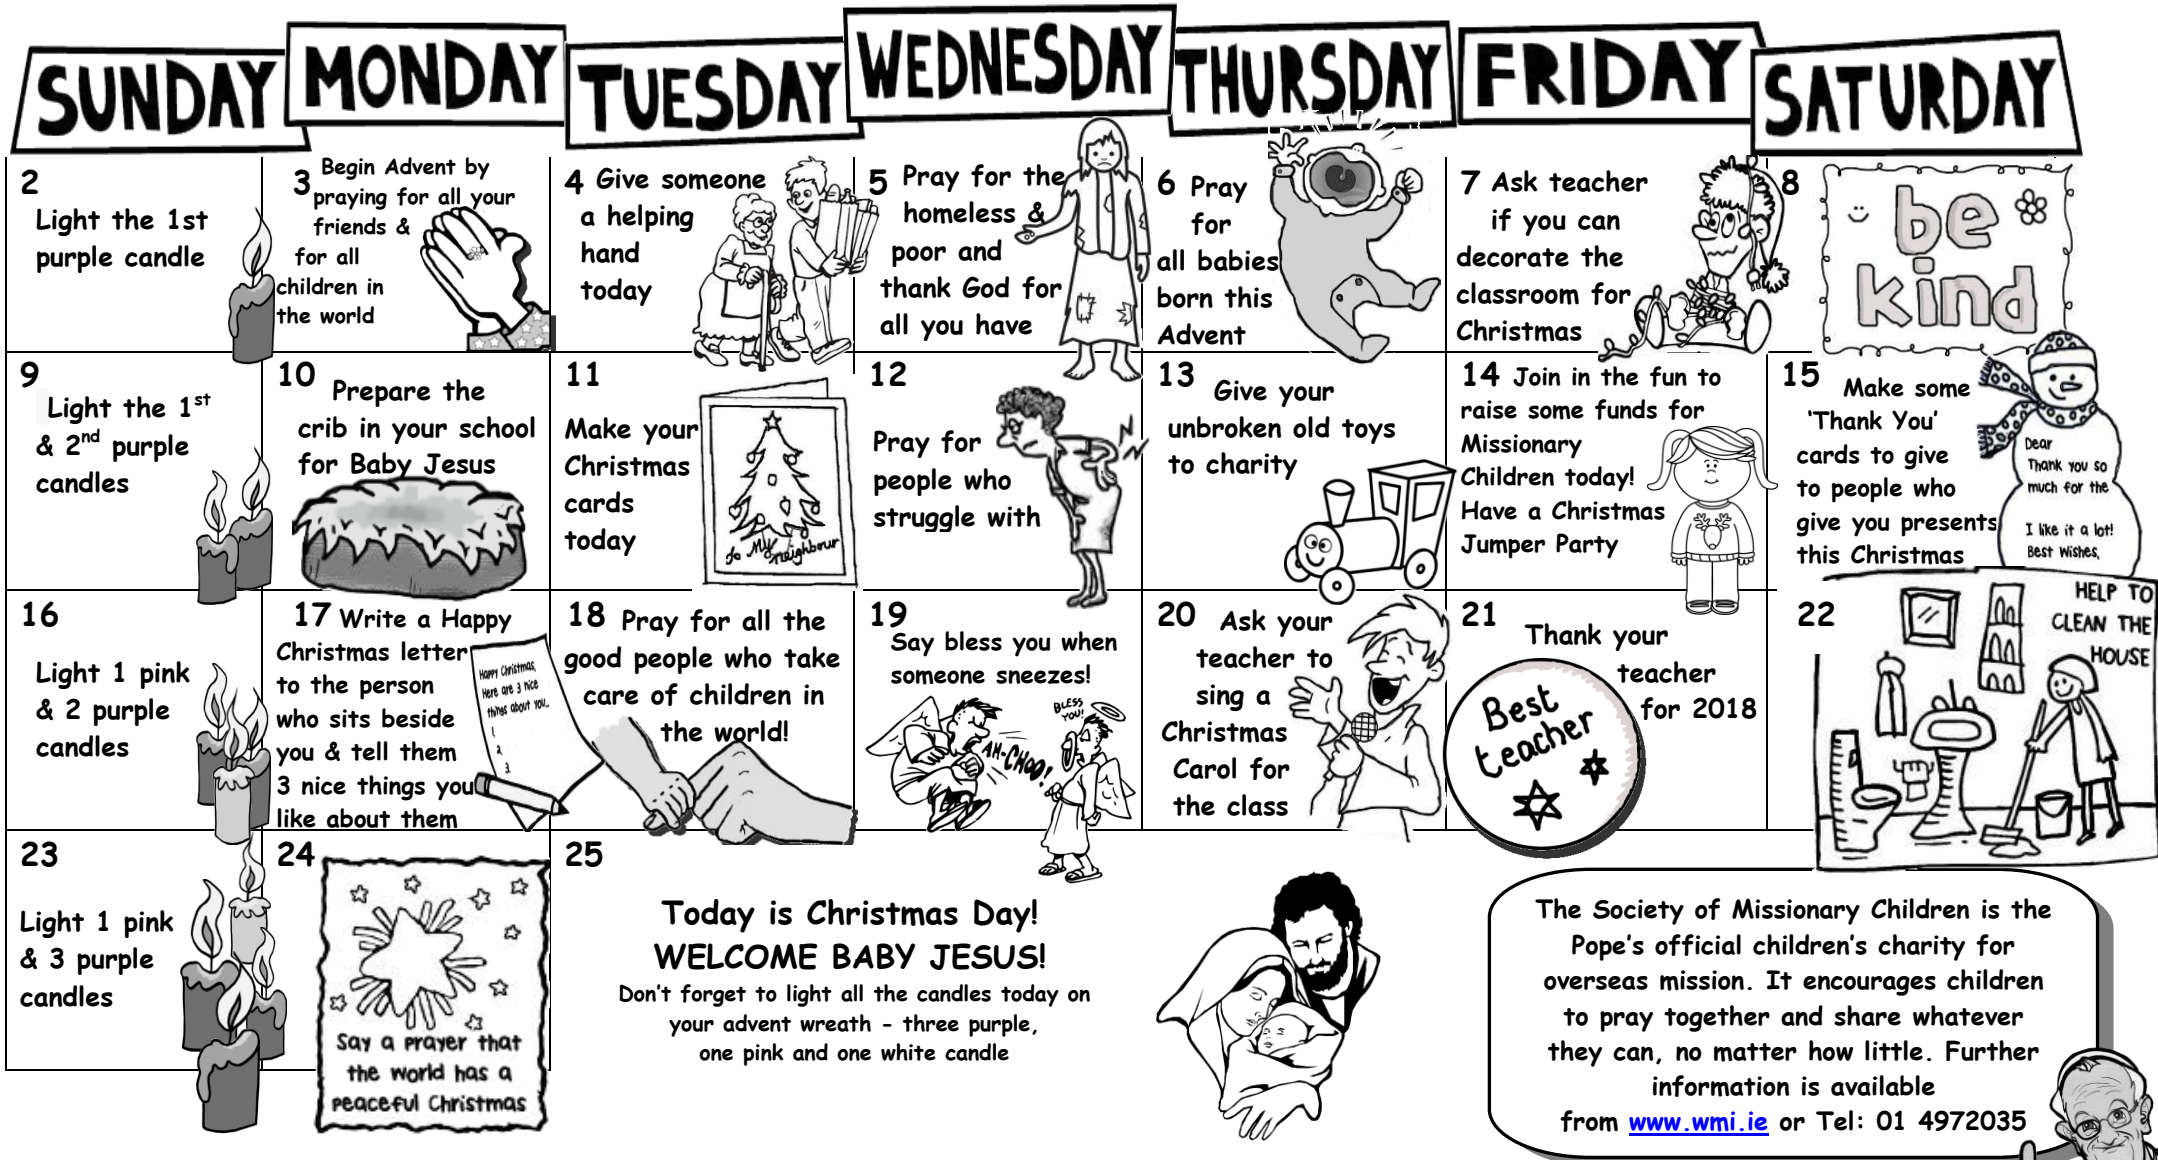 SUNDAY
MONDAY
TUESDAY
WEDNESDAY
THURSDAY
FRIDAY
SATURDAY
2
Light the 1st
purple candle
3 Begin Advent by
praying for all your
friends &
for all
children in
the world
4 Give someone
a helping
hand
today
5 Pray for the
homeless &
poor and
thank God for
all you have
6 Pray
for
all babies
born this
Advent
7 Ask teacher
if you can
decorate the
classroom for
Christmas
8
be
kind
9
Light the 1st
& 2nd purple
candles
10
Prepare the
crib in your school
for Baby Jesus
11
Make your
Christmas
cards
today
To My
neighbour
12
Pray for
people who
struggle with
13
Give your
unbroken old toys
to charity
14 Join in the fun to
raise some funds for
Missionary
Children today!
Have a Christmas
Jumper Party
15
Make some
‘Thank You’
cards to give
to people who
give you presents
this Christmas
Dear
Thank you so
much for the
I like it a lot!
Best Wishes,
16
Light 1 pink
& 2 purple
candles
17 Write a Happy
Christmas letter
to the person
who sits beside
you & tell them
3 nice things you
like about them
Happy Christmas,
Here are 3 nice
things about you...
1.
2.
3.
18 Pray for all the
good people who take
care of children in
the world!
19
Say bless you when
someone sneezes!
BLESS
YOU!
AH-CHOO!
20 Ask your
teacher to
sing a
Christmas
Carol for
the class
21
Thank your
teacher
for 2018
Best
teacher
22
HELP TO
CLEAN THE
HOUSE
23
Light 1 pink
& 3 purple
candles
24
Say a prayer that
the world has a
peaceful Christmas
25
Today is Christmas Day!
WELCOME BABY JESUS!
Don’t forget to light all the candles today on
your advent wreath - three purple,
one pink and one white candle
The Society of Missionary Children is the
Pope’s official children’s charity for
overseas mission. It encourages children
to pray together and share whatever
they can, no matter how little. Further
information is available
from www.wmi.ie or Tel: 01 4972035